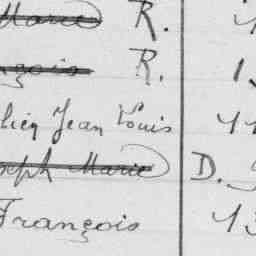 Marie R.
nçois R.
lien Jean Louis
seph Marie D.
François